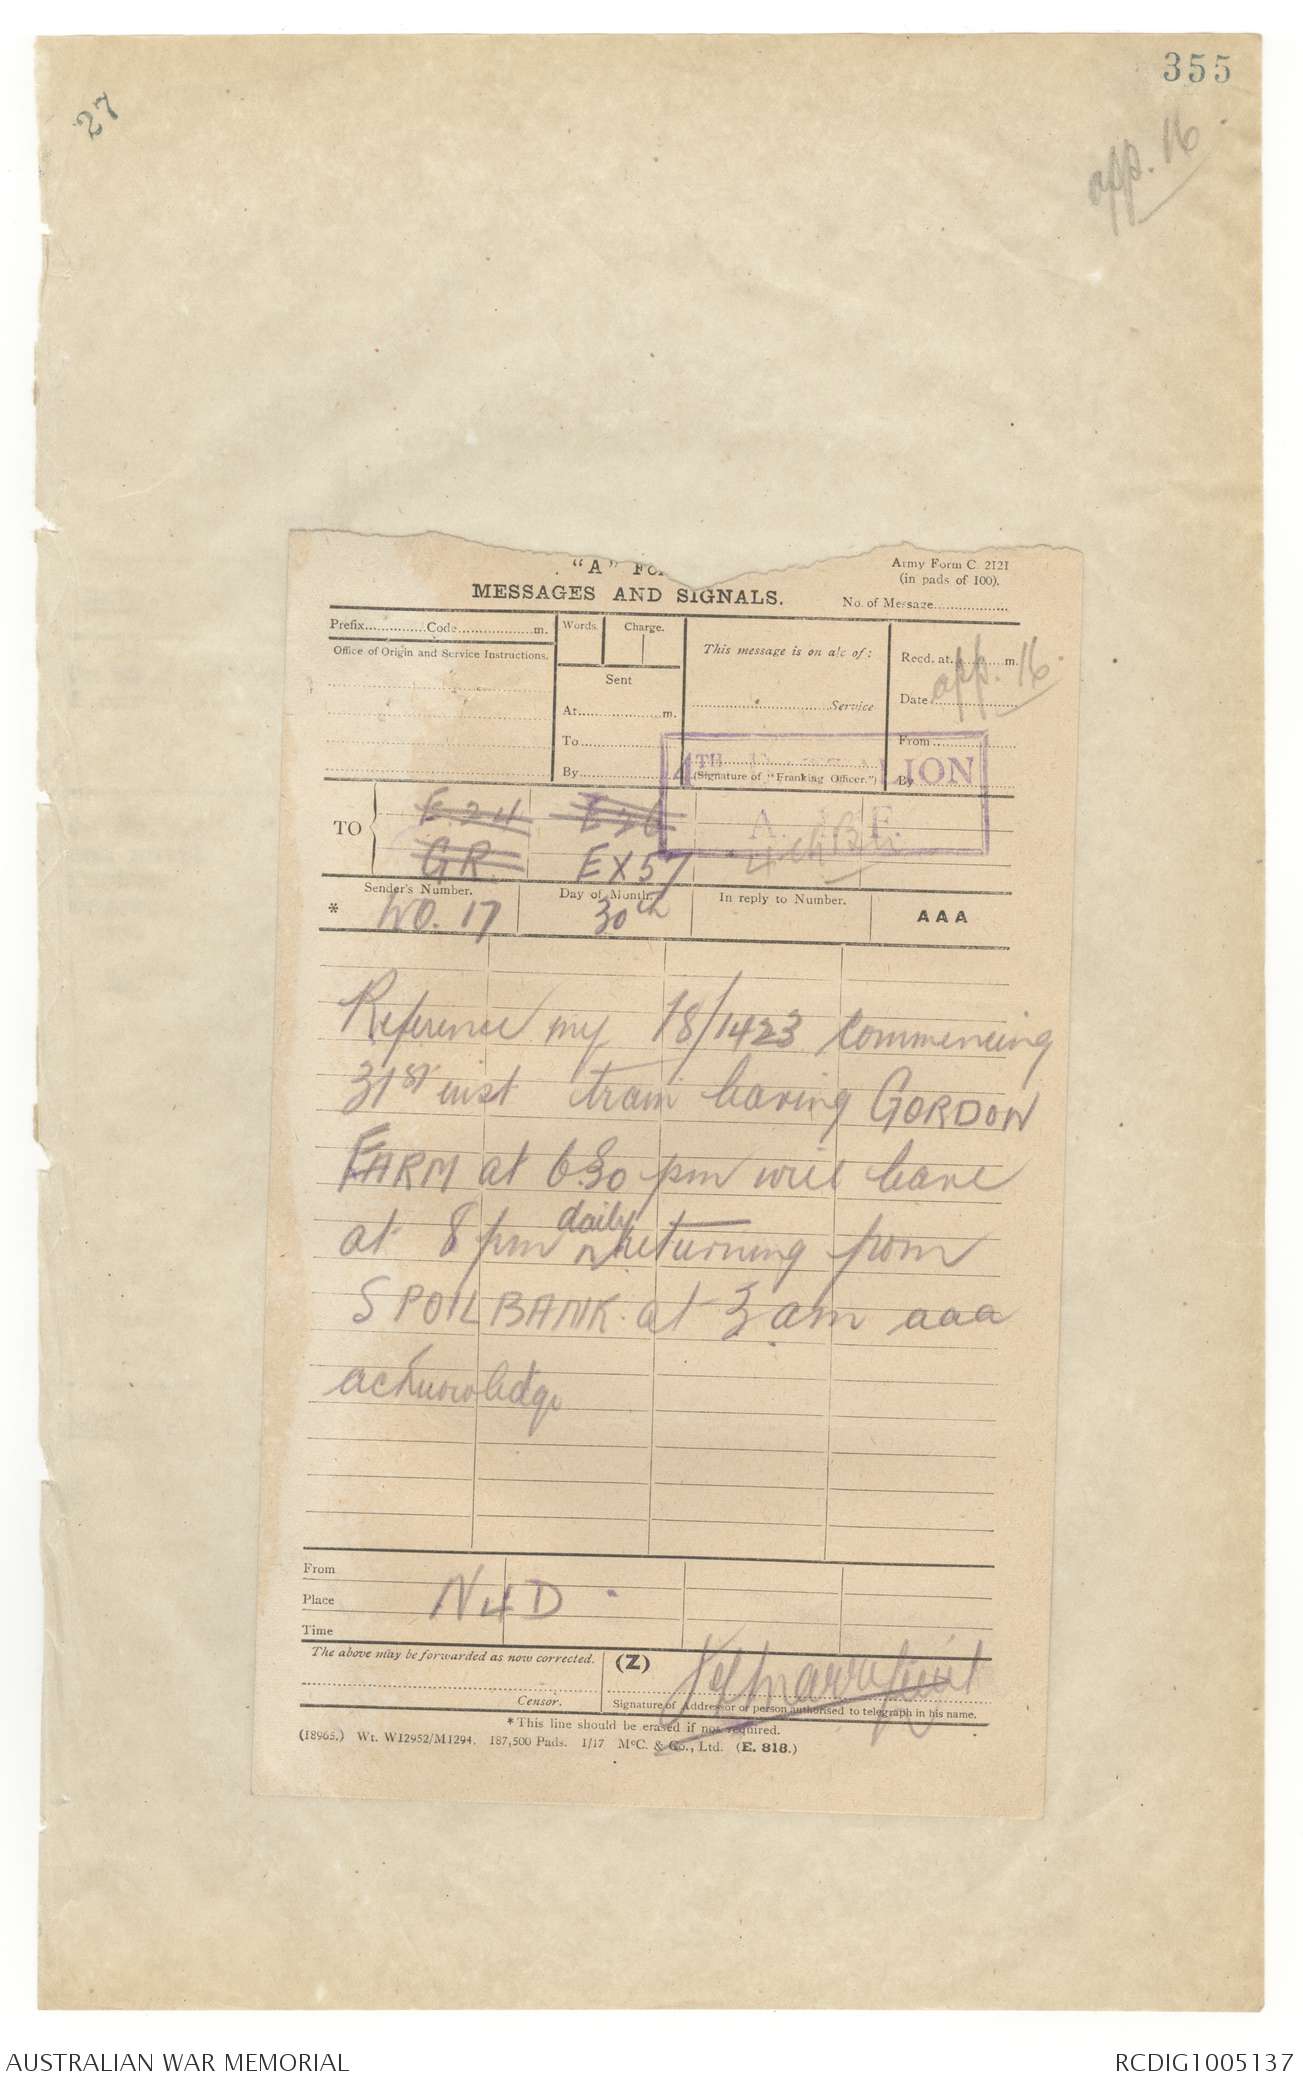 355
27
app. 16
"A" FO
MESSAGES AND SIGNALS.
Army Form C. 2121
(in pads of 100).
No. of Message..................
Prefix...............Code...................m.
Words.
Charge.
This message is on a/c of:
Recd. at............m.
Office of Origin and Service Instructions.
Sent
app. 16
Date
Service
At....................m.
To
From
4TH BATTALION
By
(Signature of "Franking Officer.")
By
A. I. F.
TO
E.24
E26
4th Bn
GR.
EX57
Sender's Number.
Day of Month.
In reply to Number.
AAA
* WO. 17
30th
Reference my 18/1423 commencing
31st inst train leaving GORDON
FARM at 6.30 pm will leave
at 8 pm daily returning from
SPOILBANK at 3 am aaa
acknowledge
From
Place
N4D
Time
The above may be forwarded as now corrected.
(Z)
Censor.
Signature of Addressor or person authorised to telegraph in his name.
* This line should be erased if not required.
(18965.) Wt. W12952/M1294. 187,500 Pads. 1/17 McC. & Co., Ltd. (E. 818.)
AUSTRALIAN WAR MEMORIAL
RCDIG1005137